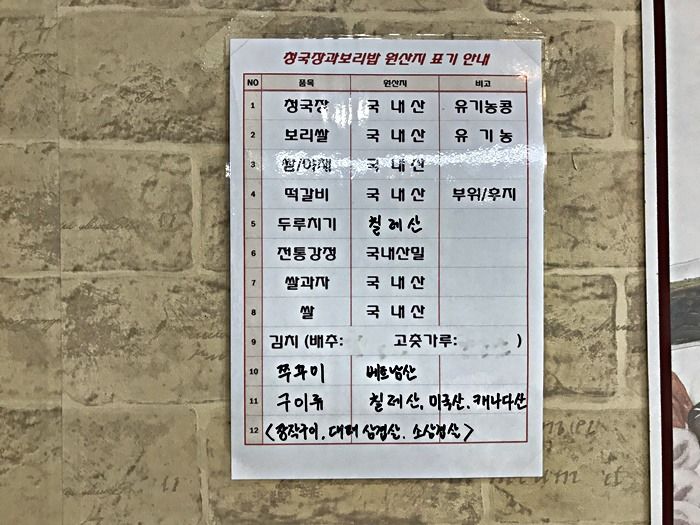 청국장과보리밥 원산지 표기 안내
NO 품목 원산지 비고
1 청국장 국내산 유기농콩
2 보리쌀 국내산 유기농
3 쌀/야채 국내산
4 떡갈비 국내산 부위/후지
5 두루치기 칠레산
6 전통강정 국내산밀
7 쌀과자 국내산
8 쌀 국내산
9 김치 (배추: 고춧가루: )
10 쭈꾸미 베트남산
11 구이류 칠레산, 미국산, 캐나다산
12 <장작구이, 대패 삼겹살, 소삼겹살>